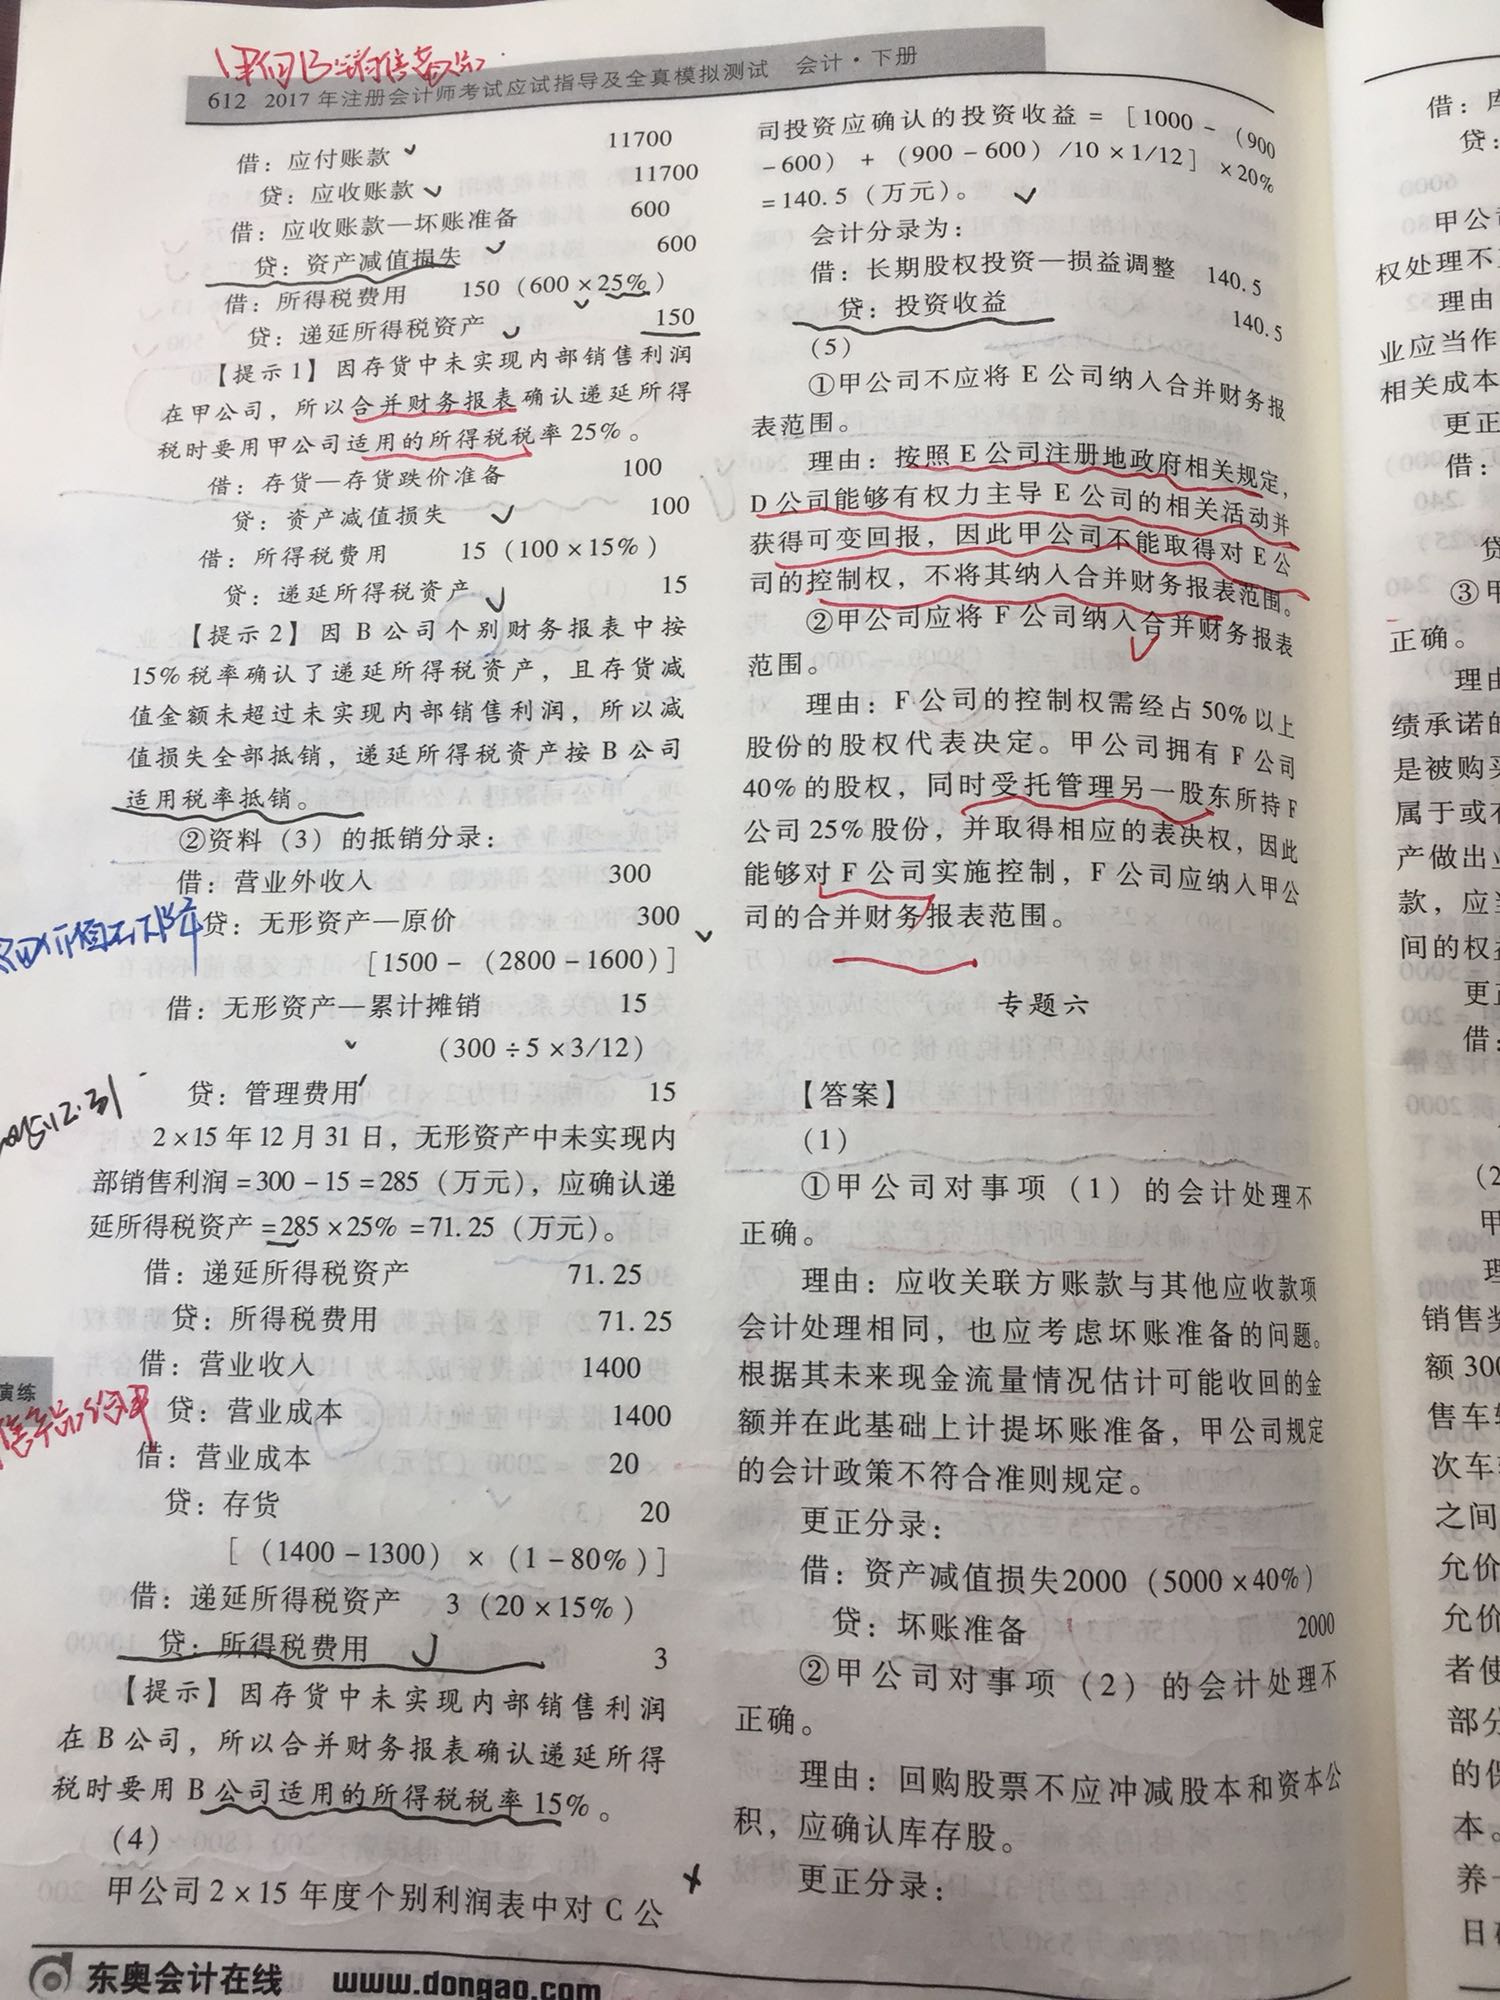 甲向B销售商品
612 2017年注册会计师考试应试指导及全真模拟测试 会计·下册
借：应付账款 11700
贷：应收账款 11700
借：应收账款—坏账准备 600
贷：资产减值损失 600
借：所得税费用 150（600×25%）
贷：递延所得税资产 150
【提示1】因存货中未实现内部销售利润
在甲公司，所以合并财务报表确认递延所得
税时要用甲公司适用的所得税税率25%。
借：存货—存货跌价准备 100
贷：资产减值损失 100
借：所得税费用 15（100×15%）
贷：递延所得税资产 15
【提示2】因B公司个别财务报表中按
15%税率确认了递延所得税资产，且存货减
值金额未超过未实现内部销售利润，所以减
值损失全部抵销，递延所得税资产按B公司
适用税率抵销。
②资料（3）的抵销分录：
借：营业外收入 300
贷：无形资产—原价 300
[1500-（2800-1600）]
借：无形资产—累计摊销 15
（300÷5×3/12）
贷：管理费用 15
2×15年12月31日，无形资产中未实现内
部销售利润=300-15=285（万元），应确认递
延所得税资产=285×25%=71.25（万元）。
借：递延所得税资产 71.25
贷：所得税费用 71.25
借：营业收入 1400
贷：营业成本 1400
借：营业成本 20
贷：存货 20
[（1400-1300）×（1-80%）]
借：递延所得税资产 3（20×15%）
贷：所得税费用 3
【提示】因存货中未实现内部销售利润
在B公司，所以合并财务报表确认递延所得
税时要用B公司适用的所得税税率15%。
（4）
甲公司2×15年度个别利润表中对C公
演练
司投资应确认的投资收益=[1000-（900
-600）+（900-600）/10×1/12]×20%
=140.5（万元）。
会计分录为：
借：长期股权投资—损益调整 140.5
贷：投资收益 140.5
（5）
①甲公司不应将E公司纳入合并财务报
表范围。
理由：按照E公司注册地政府相关规定，
D公司能够有权力主导E公司的相关活动并
获得可变回报，因此甲公司不能取得对E公
司的控制权，不将其纳入合并财务报表范围。
②甲公司应将F公司纳入合并财务报表
范围。
理由：F公司的控制权需经占50%以上
股份的股权代表决定。甲公司拥有F公司
40%的股权，同时受托管理另一股东所持F
公司25%股份，并取得相应的表决权，因此
能够对F公司实施控制，F公司应纳入甲公
司的合并财务报表范围。
专题六
【答案】
（1）
①甲公司对事项（1）的会计处理不
正确。
理由：应收关联方账款与其他应收款项
会计处理相同，也应考虑坏账准备的问题。
根据其未来现金流量情况估计可能收回的金
额并在此基础上计提坏账准备，甲公司规定
的会计政策不符合准则规定。
更正分录：
借：资产减值损失2000（5000×40%）
贷：坏账准备 2000
②甲公司对事项（2）的会计处理不
正确。
理由：回购股票不应冲减股本和资本公
积，应确认库存股。
更正分录：
东奥会计在线 www.dongao.com
借：
贷：
甲公
权处理不
理由
业应当作
相关成本
更正
借：
贷
③甲
正确。
理由
绩承诺的
是被购买
属于或有
产做出
款，应
间的权益
更正
借：
（2
甲
理
销售奖
额300
售车
次车
之间
允价
允价
者使
部分
的保
本。
养
日